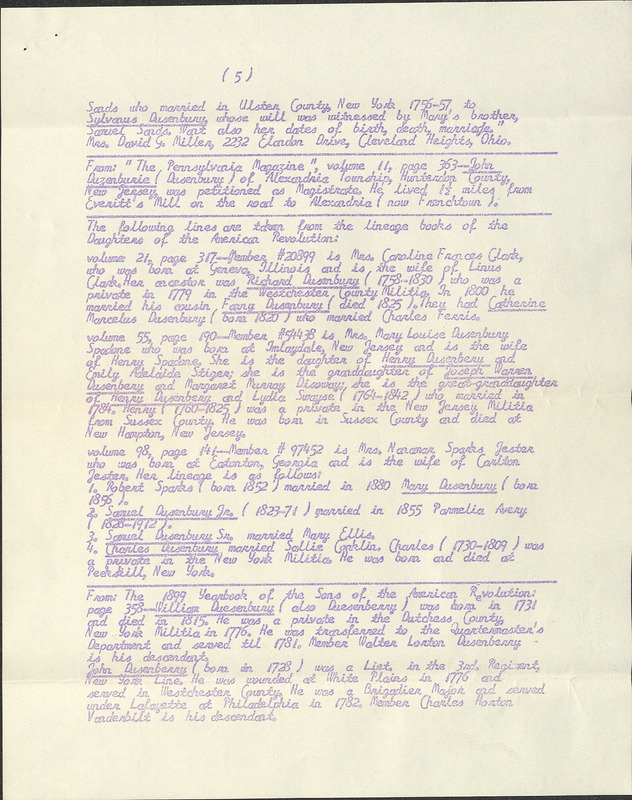 (5)
Sands who married in Ulster County, New York 1756-57, to
Sylvanus Dusenbury, whose will was witnessed by Mary's brother,
Samuel Sands. Want also her dates of birth, death, marriage."
Mrs. David G. Miller, 2232 Elandon Drive, Cleveland Heights, Ohio.
From: "The Pennsylvania Magazine", volume 11, page 363--John
Duzenburie ( Dusenbury ) of Alexandria Township, Hunterdon County,
New Jersey, was petitioned as Magistrate. He lived 1½ miles from
Everitt's Mill on the road to Alexandria ( now Frenchtown ).
The following lines are taken from the lineage books of the
Daughters of the American Revolution:
volume 21, page 317--Member #20899 is Mrs. Caroline Frances Clark,
who was born at Geneva, Illinois and is the wife of Linus
Clark. Her ancestor was Richard Dusenbury ( 1758-1830 ) who was a
private in 1779 in the Westchester County Militia. In 1800 he
married his cousin Fanny Dusenbury ( died 1825 ). They had Catherine
Marcelus Dusenbury ( born 1820 ) who married Charles Ferris.
volume 55, page 190--Member #54438 is Mrs. Mary Louise Dusenbury
Spadone who was born at Imlaydale, New Jersey and is the wife
of Henry Spadone. She is the daughter of Henry Dusenbery and
Emily Adelaide Stiger; she is the granddaughter of Joseph Warren
Dusenbery and Margaret Murray Disoway; she is the great-granddaughter
of Henry Dusenbery and Lydia Swayse ( 1764-1842 ) who married in
1784. Henry ( 1760-1825 ) was a private in the New Jersey Militia
from Sussex County. He was born in Sussex County and died at
New Hampton, New Jersey.
volume 98, page 141--Member # 97452 is Mrs. Naramor Sparks Jester
who was born at Eatonton, Georgia and is the wife of Carlton
Jester. Her Lineage is as follows:
1. Robert Sparks ( born 1852 ) married in 1880 Mary Dusenbury ( born
1856 ).
2. Samuel Dusenbury Jr. ( 1823-71 ) married in 1855 Parmelia Avery
( 1828-1912 ).
3. Samuel Dusenbury Sr. married Mary Ellis.
4. Charles Dusenbury married Sallie Conklin. Charles ( 1730-1809 ) was
a private in the New York Militia. He was born and died at
Peekskill, New York.
From: The 1899 Yearbook of the Sons of the American Revolution:
page 358--William Duesenbury ( also Duesenberry ) was born in 1731
and died in 1815. He was a private in the Dutchess County,
New York Militia in 1776. He was transferred to the Quartermaster's
Department and served til 1781. Member Walter Lorton Dusenberry
is his descendant.
John Dusenberry ( born in 1728 ) was a Liet. in the 3rd. Regiment,
New York Line. He was wounded at White Plains in 1776 and
served in Westchester County. He was a Brigadier Major and served
under Lafayette at Philadelphia in 1782. Member Charles Horton
Vanderbilt is his descendant.